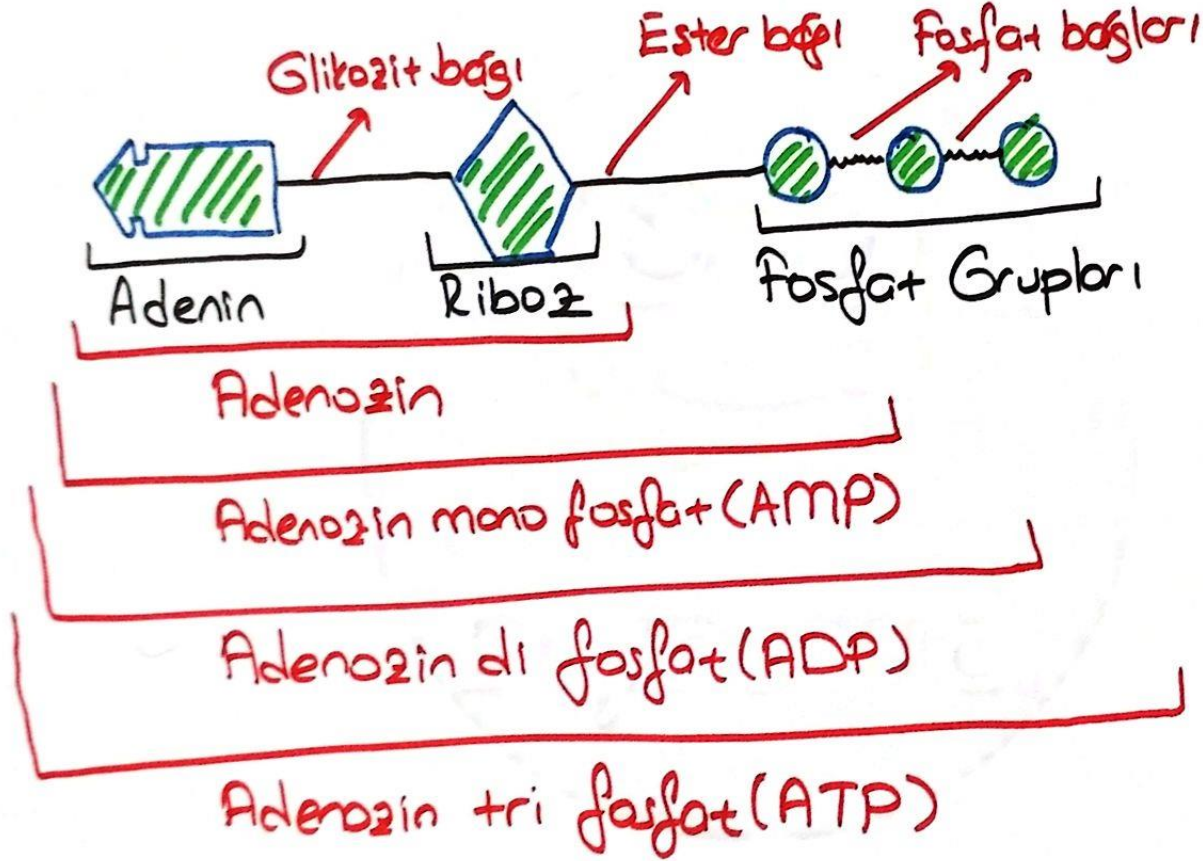 Glikozit bağı
Ester bağı
Fosfat bağları
Adenin
Riboz
Fosfat Grupları
Adenozin
Adenozin mono fosfat (AMP)
Adenozin di fosfat (ADP)
Adenozin tri fosfat (ATP)